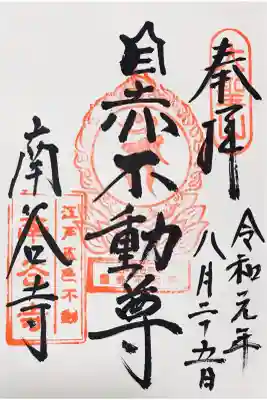 奉拝
令和元年
八月二十五日
目赤不動尊
南谷寺
江戸五色不動